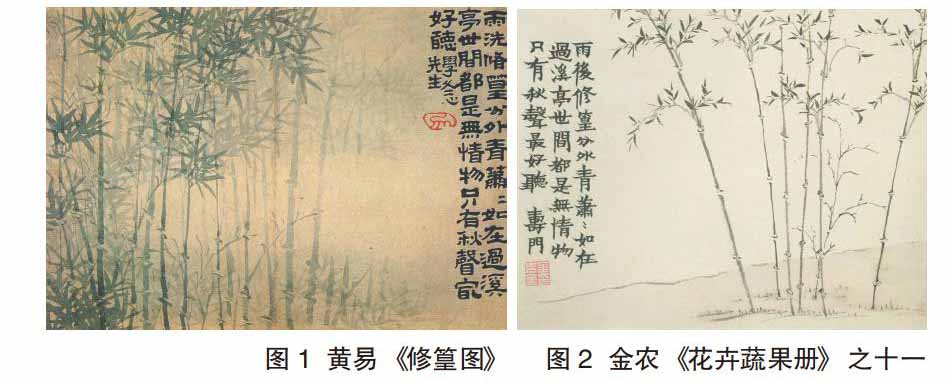 雨洗脩篁分外青蕭〻如在過溪
亭世間都是無情物只有秋聲㝡
好聽 學冬心
先生
雨後修篁分外青蕭〻如在
過溪亭世間都是無情物
只有秋聲最好聽 壽門
图1 黄易《修篁图》
图2 金农《花卉蔬果册》之十一